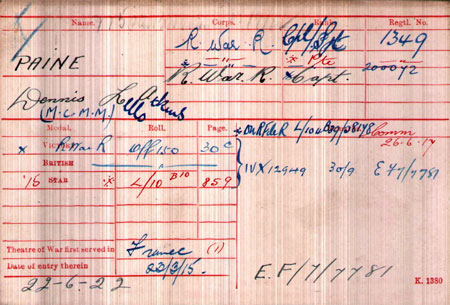 Name. Corps. Rank. Regtl. No.
PAINE R. War. R. Cpl/Sgt 1349
* — " — * Pte 200092
R. War. R. * Capt.
Dennis
(M.C. M.M.)
Medal. Roll. Page.
* VICTORY R War R O/P 150 30
BRITISH
'15 STAR * L/10 B10 859
Comm
26.6.17
IV X 12949 30/9 E F7/7781
Theatre of War first served in France (1)
Date of entry therein 22/3/15.
22-6-22
E.F/7/7781
K. 1380